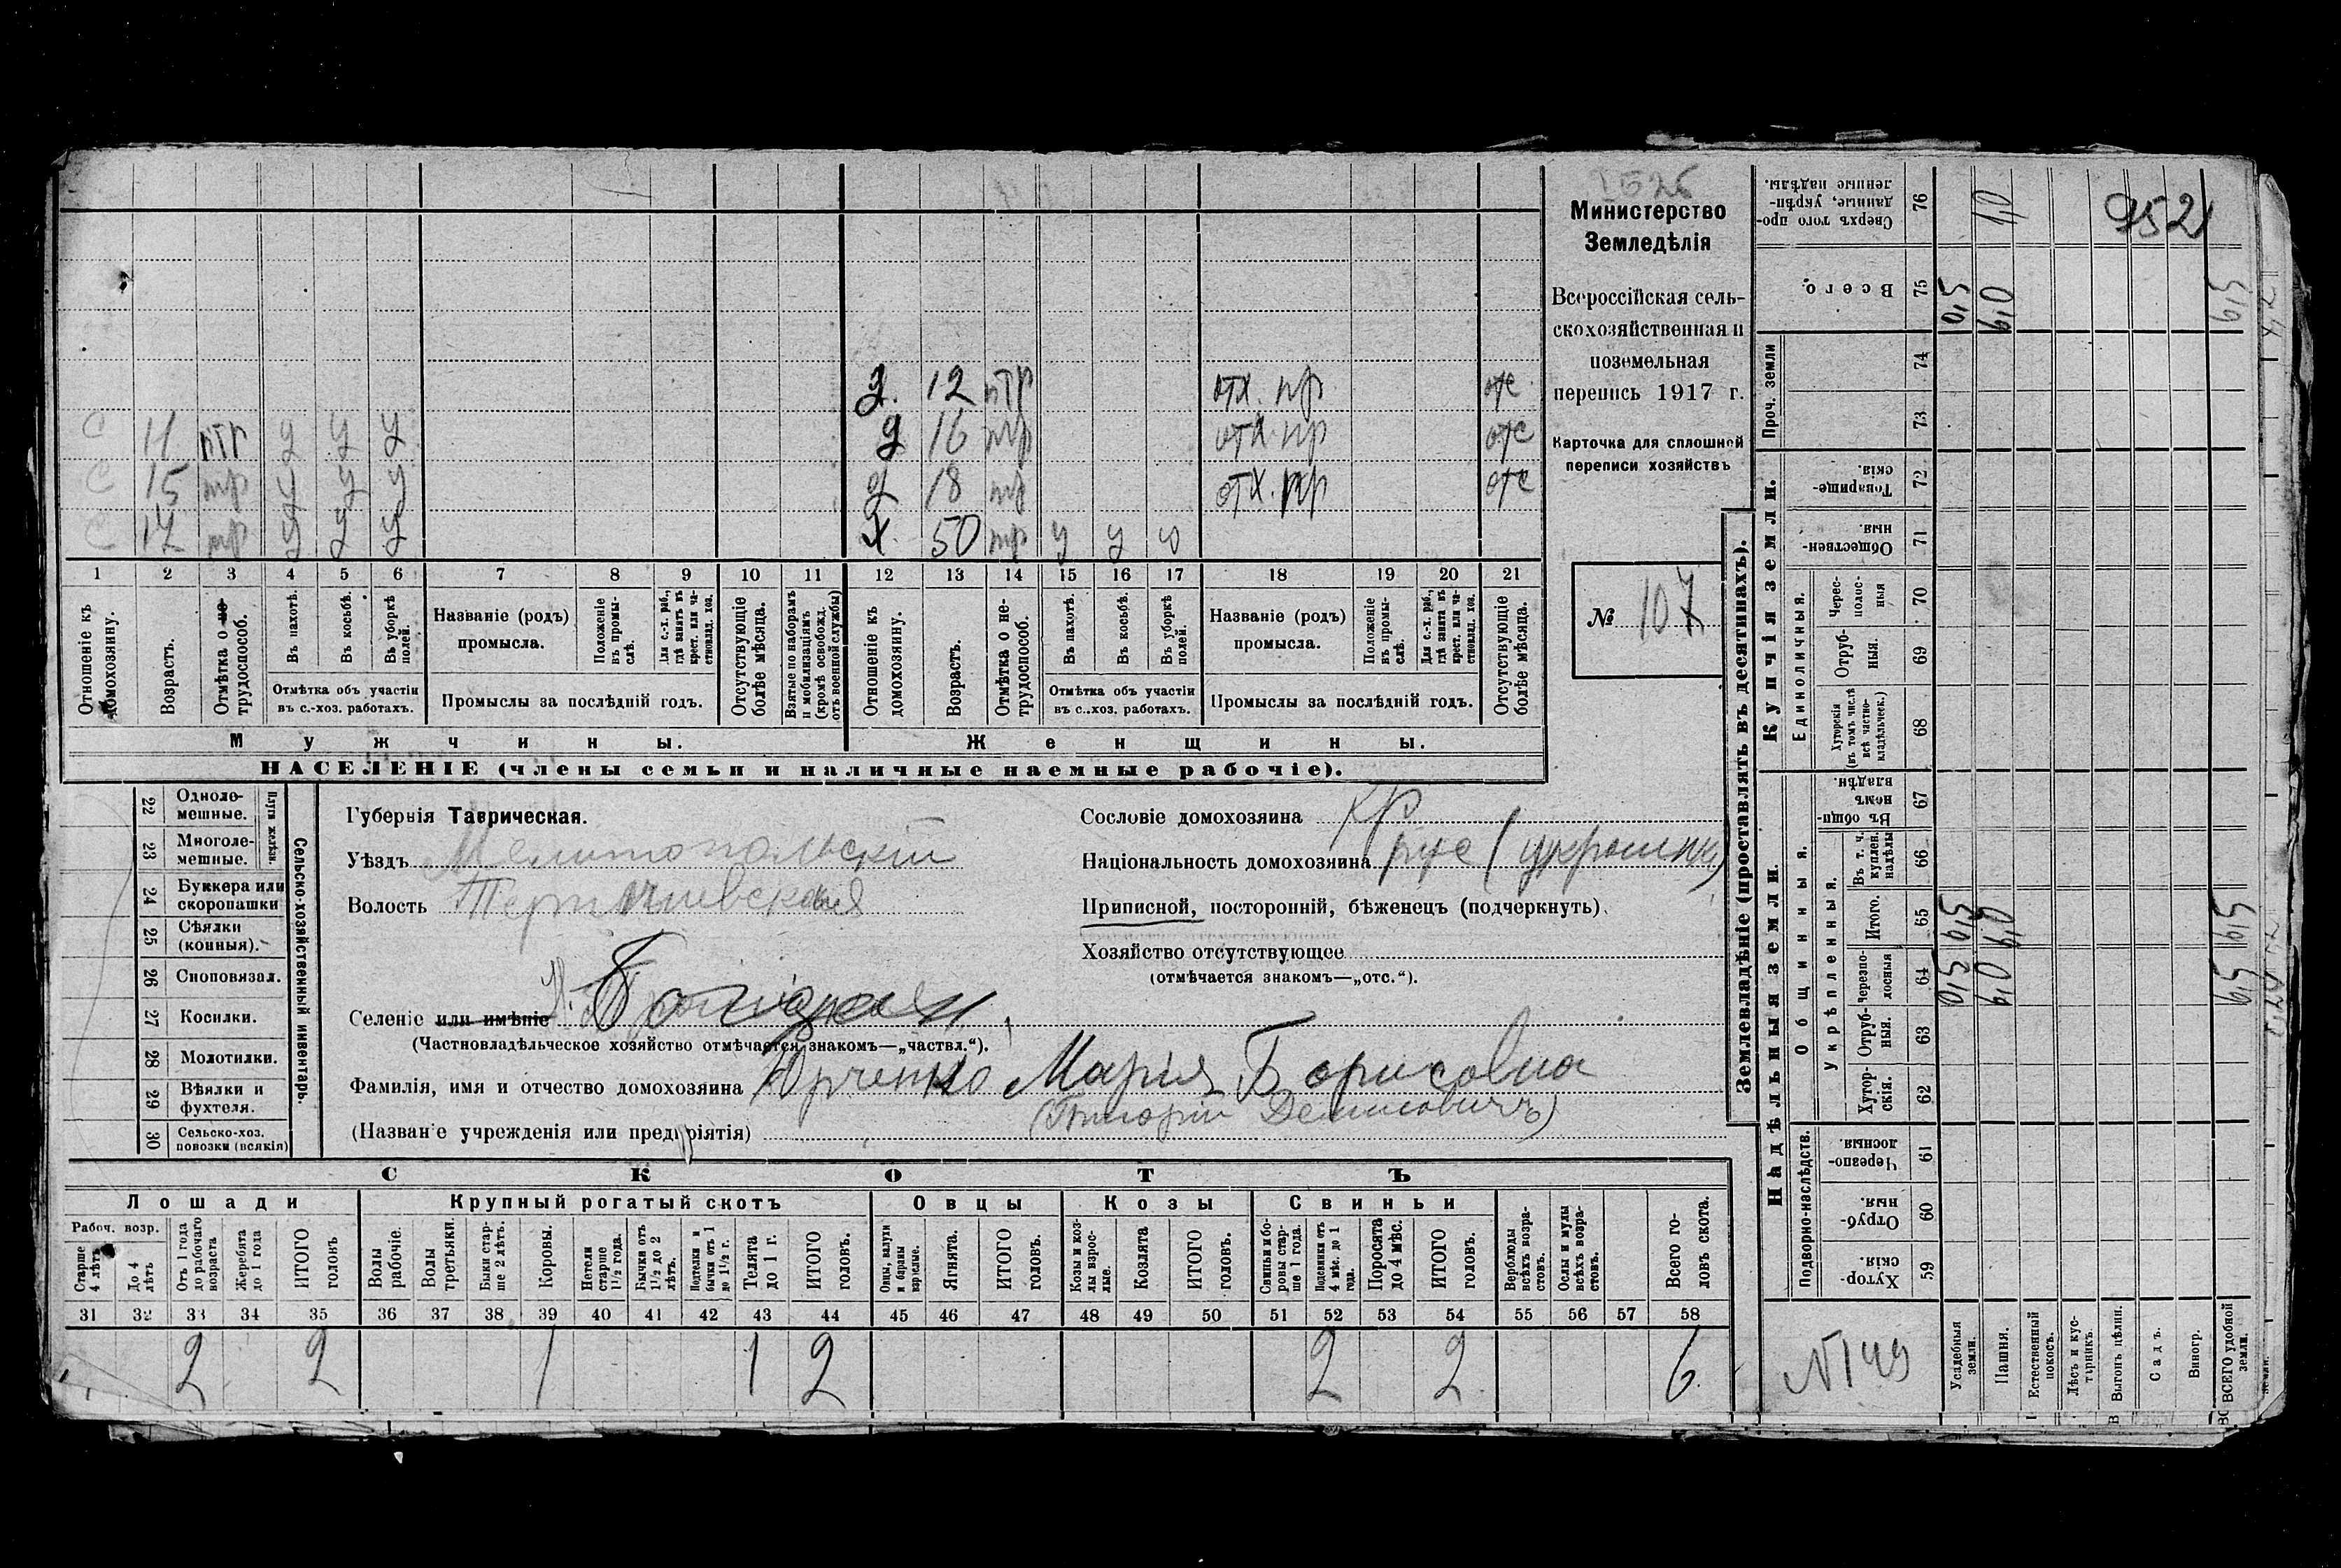 Министерство
Земледѣлія
Всероссійская сель-
скохозяйственная и
поземельная
перепись 1917 г.
Карточка для сплошной
переписи хозяйствъ
№ 107
д. 12 отх. пр отс
с 11 у у у д 16 отх. пр отс
с 15 у у у д 18 отх. пр отс
с 17 у у у х 50 у у
1 2 3 4 5 6 7 8 9 10 11 12 13 14 15 16 17 18 19 20 21
Отношеніе къ домохозяину.
Возрастъ.
Отмѣтка о не-трудоспособ.
Въ пахотѣ.
Въ косьбѣ.
Въ уборкѣ полей.
Отмѣтка объ участіи въ с.-хоз. работахъ.
Названіе (родъ) промысла.
Положеніе въ промы-слѣ.
Для с.-х. раб., гдѣ занятъ въ крест. или ча-стновлад. хоз.
Промыслы за послѣдній годъ.
Отсутствующіе болѣе мѣсяца.
Взятые по наборамъ и мобилизаціямъ (кромѣ освобожд. отъ военной службы)
Отношеніе къ домохозяину.
Возрастъ.
Отмѣтка о не-трудоспособ.
Въ пахотѣ.
Въ косьбѣ.
Въ уборкѣ полей.
Отмѣтка объ участіи въ с.-хоз. работахъ.
Названіе (родъ) промысла.
Положеніе въ промы-слѣ.
Для с.-х. раб., гдѣ занята въ крест. или ча-стновлад. хоз.
Промыслы за послѣдній годъ.
Отсутствующіе болѣе мѣсяца.
Мужчины. Женщины.
НАСЕЛЕНІЕ (члены семьи и наличные наемные рабочіе).
Сельско-хозяйственный инвентарь.
Плуги желѣзн.
22 Одноле-мешные.
23 Многоле-мешные.
24 Буккера или скоропашки
25 Сѣялки (конныя).
26 Сноповязал.
27 Косилки.
28 Молотилки.
29 Вѣялки и фухтеля.
30 Сельско-хоз. повозки (всякія)
Губернія Таврическая.
Уѣздъ Мелитопольскій
Волость
Селеніе или имѣніе
(Частновладѣльческое хозяйство отмѣчается знакомъ—„частвл.“).
Фамилія, имя и отчество домохозяина Юрченко Марія Борисовна
(Григорій Денисовичъ)
(Названіе учрежденія или предпріятія)
Сословіе домохозяина кр
Національность домохозяина рус (украин.)
Приписной, посторонній, бѣженецъ (подчеркнуть).
Хозяйство отсутствующее
(отмѣчается знакомъ—„отс.“).
СКОТЪ
Лошади Крупный рогатый скотъ Овцы Козы Свиньи
Рабоч. возр.
Старше 4 лѣтъ
До 4 лѣтъ
Отъ 1 года до рабочаго возраста
Жеребята до 1 года
ИТОГО головъ
Волы рабочіе.
Волы третьяки.
Быки стар-ше 2 лѣтъ.
Коровы.
Нетели старше 1½ года.
Бычки отъ 1½ до 2 лѣтъ.
Подтелки и бычки отъ 1 до 1½ г.
Телята до 1 г.
ИТОГО головъ.
Овцы, валухи и бараны взрослые.
Ягнята.
ИТОГО головъ.
Козы и коз-лы взрос-лые.
Козлята
ИТОГО головъ.
Свиньи и бо-ровы стар-ше 1 года.
Подсвинки отъ 4 мѣс. до 1 года.
Поросята до 4 мѣс.
ИТОГО головъ.
Верблюды всѣхъ возра-стовъ.
Ослы и мулы всѣхъ возра-стовъ.
Всего го-ловъ скота.
31 32 33 34 35 36 37 38 39 40 41 42 43 44 45 46 47 48 49 50 51 52 53 54 55 56 57 58
2 2 1 1 2 2 2 6
Землевладѣніе (проставлять въ десятинахъ).
Надѣльныя земли. Купчія земли. Проч. земли
Подворно-наслѣдств. Общинныя. Единоличныя.
Укрѣпленныя.
Хутор-скія. 59
Отруб-ныя. 60
Черезпо-лосныя. 61
Хутор-скія. 62
Отруб-ныя. 63
Черезпо-лосныя 64
Итого. 65
Въ т. ч. куплен. надѣлы 66
Въ общи-номъ владѣн. 67
Хуторскія (въ томъ числѣ всѣ частно-владѣльческ.) 68
Отруб-ныя. 69
Черес-полос-ныя 70
Обществен-ныя. 71
Товарище-скія. 72
73
74
Всего. 75
Сверхъ того про-данные, укрѣп-ленные надѣлы. 76
952
№149
Усадебныя земли.
Пашня.
Естественный покосъ.
Лѣсъ и кус-тарникъ.
Выгонъ цѣлин.
Садъ.
Виногр.
ВСЕГО удобной земли.